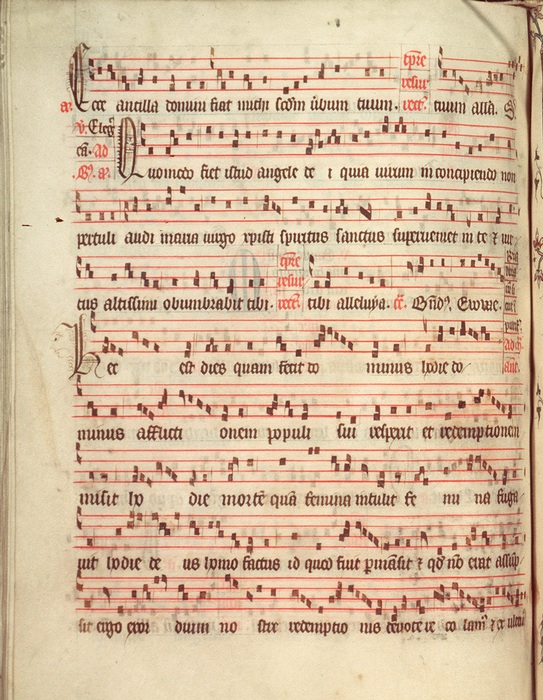 Ecce ancilla domini fiat michi scdm ūbum tuum. tuum alla.
Quomodo fiet istud angele de i quia uirum in concipiendo non
pertuli audi maria uirgo xpisti spiritus sanctus superueniet in te ⁊ uir
tus altissimi obumbrabit tibi. tibi alleluya. Euouae.
Hec est dies quam fecit do minus hodie do
minus afflicti onem populi sui respexit et redemptionem
misit ho die mortē quā femina intulit fe mi na fuga
uit hodie de us homo factus id quod fuit pmāsit ⁊ qd nō erat assūp
sit ergo exor dium no stre redemptio nis deuote re co lam⁹